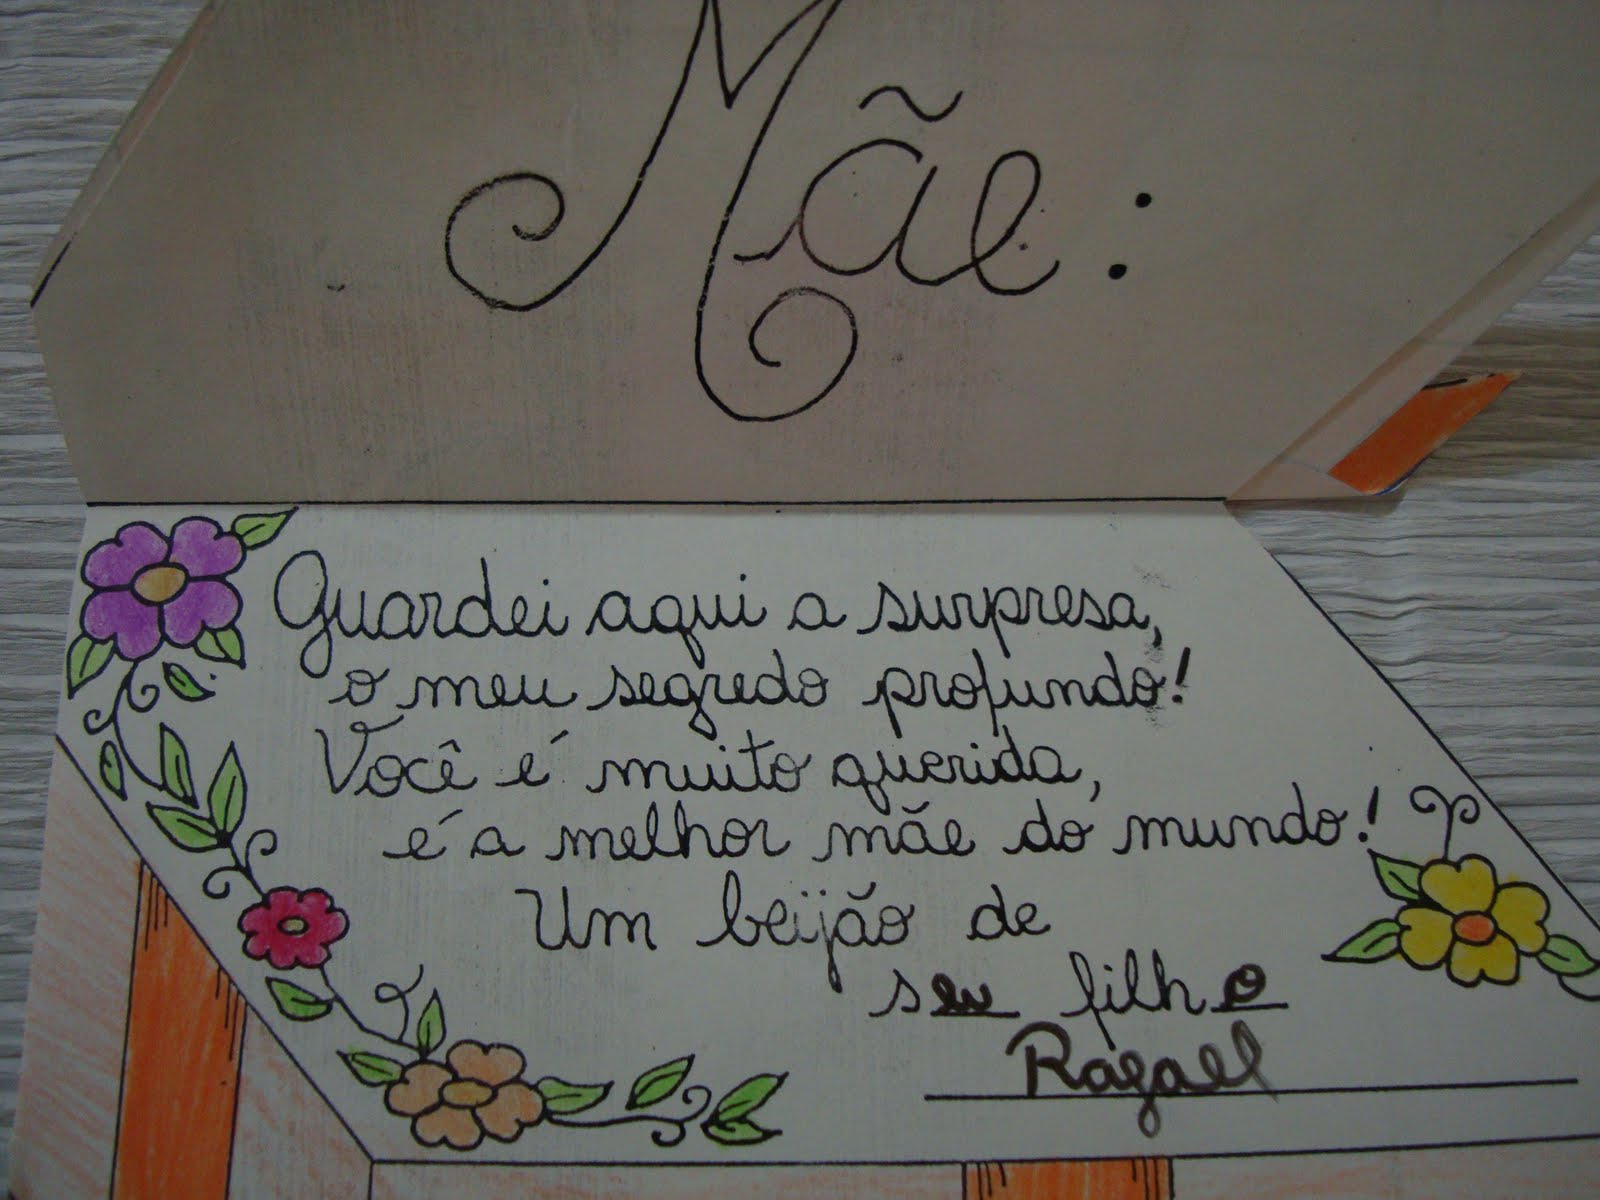 Mãe:
Guardei aqui a surpresa,
o meu segredo profundo!
Você é muito querida,
é a melhor mãe do mundo!
Um beijão de
seu filho
Rafael